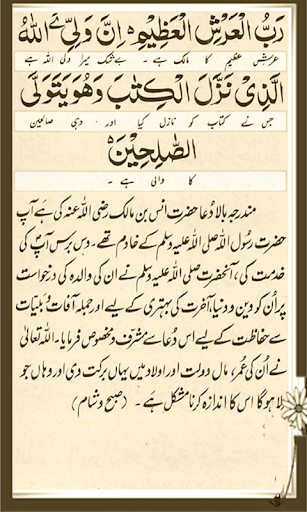 رَبُّ الْعَرْشِ الْعَظِيْمِ ۝ اِنَّ وَلِيِّ ےَ اللهُ
عرش عظیم کا مالک ہے ۔ بےشک میرا ولی اللہ ہے
الَّذِىْ نَزَّلَ الْكِتٰبَ وَهُوَ يَتَوَلَّى
جس نے کتاب کو نازل کیا اور وہی صالحین
الصّٰلِحِيْنَ ۝
کا والی ہے ۔
مندرجہ بالا دُعا حضرت انس بن مالک رضی اللہ عنہ کی ہے آپ
حضرت رسُول اللہ صلی اللہ علیہ وسلم کے خادم تھے۔ دس برس آپ کی
خدمت کی، آنحضرت صلی اللہ علیہ وسلم نے ان کی والدہ کی درخواست
پر اُن کو دین و دنیا، آخرت کی بہتری کے لیے اور جملہ آفات و بلیّات
سے حفاظت کے لیے اس دُعا سے مشرف و مخصوص فرمایا۔ اللہ تعالیٰ
نے اُن کی عُمر، مال دولت اور اولاد میں یہاں برکت دی اور وہاں جو
ملا ہوگا اس کا اندازہ کرنا مشکل ہے ۔ (صبح و شام)